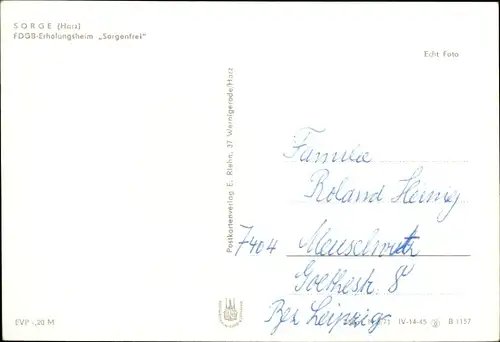 SORGE (Harz)
FDGB-Erholungsheim „Sorgenfrei"
Echt Foto
Postkartenverlag E. Riehn, 37 Wernigerode/Harz
Familie
Roland Heinig
7404 Meuselwitz
Goethestr. 8
Bez Leipzig
EVP -,20 M
IV-14-45
B 1157